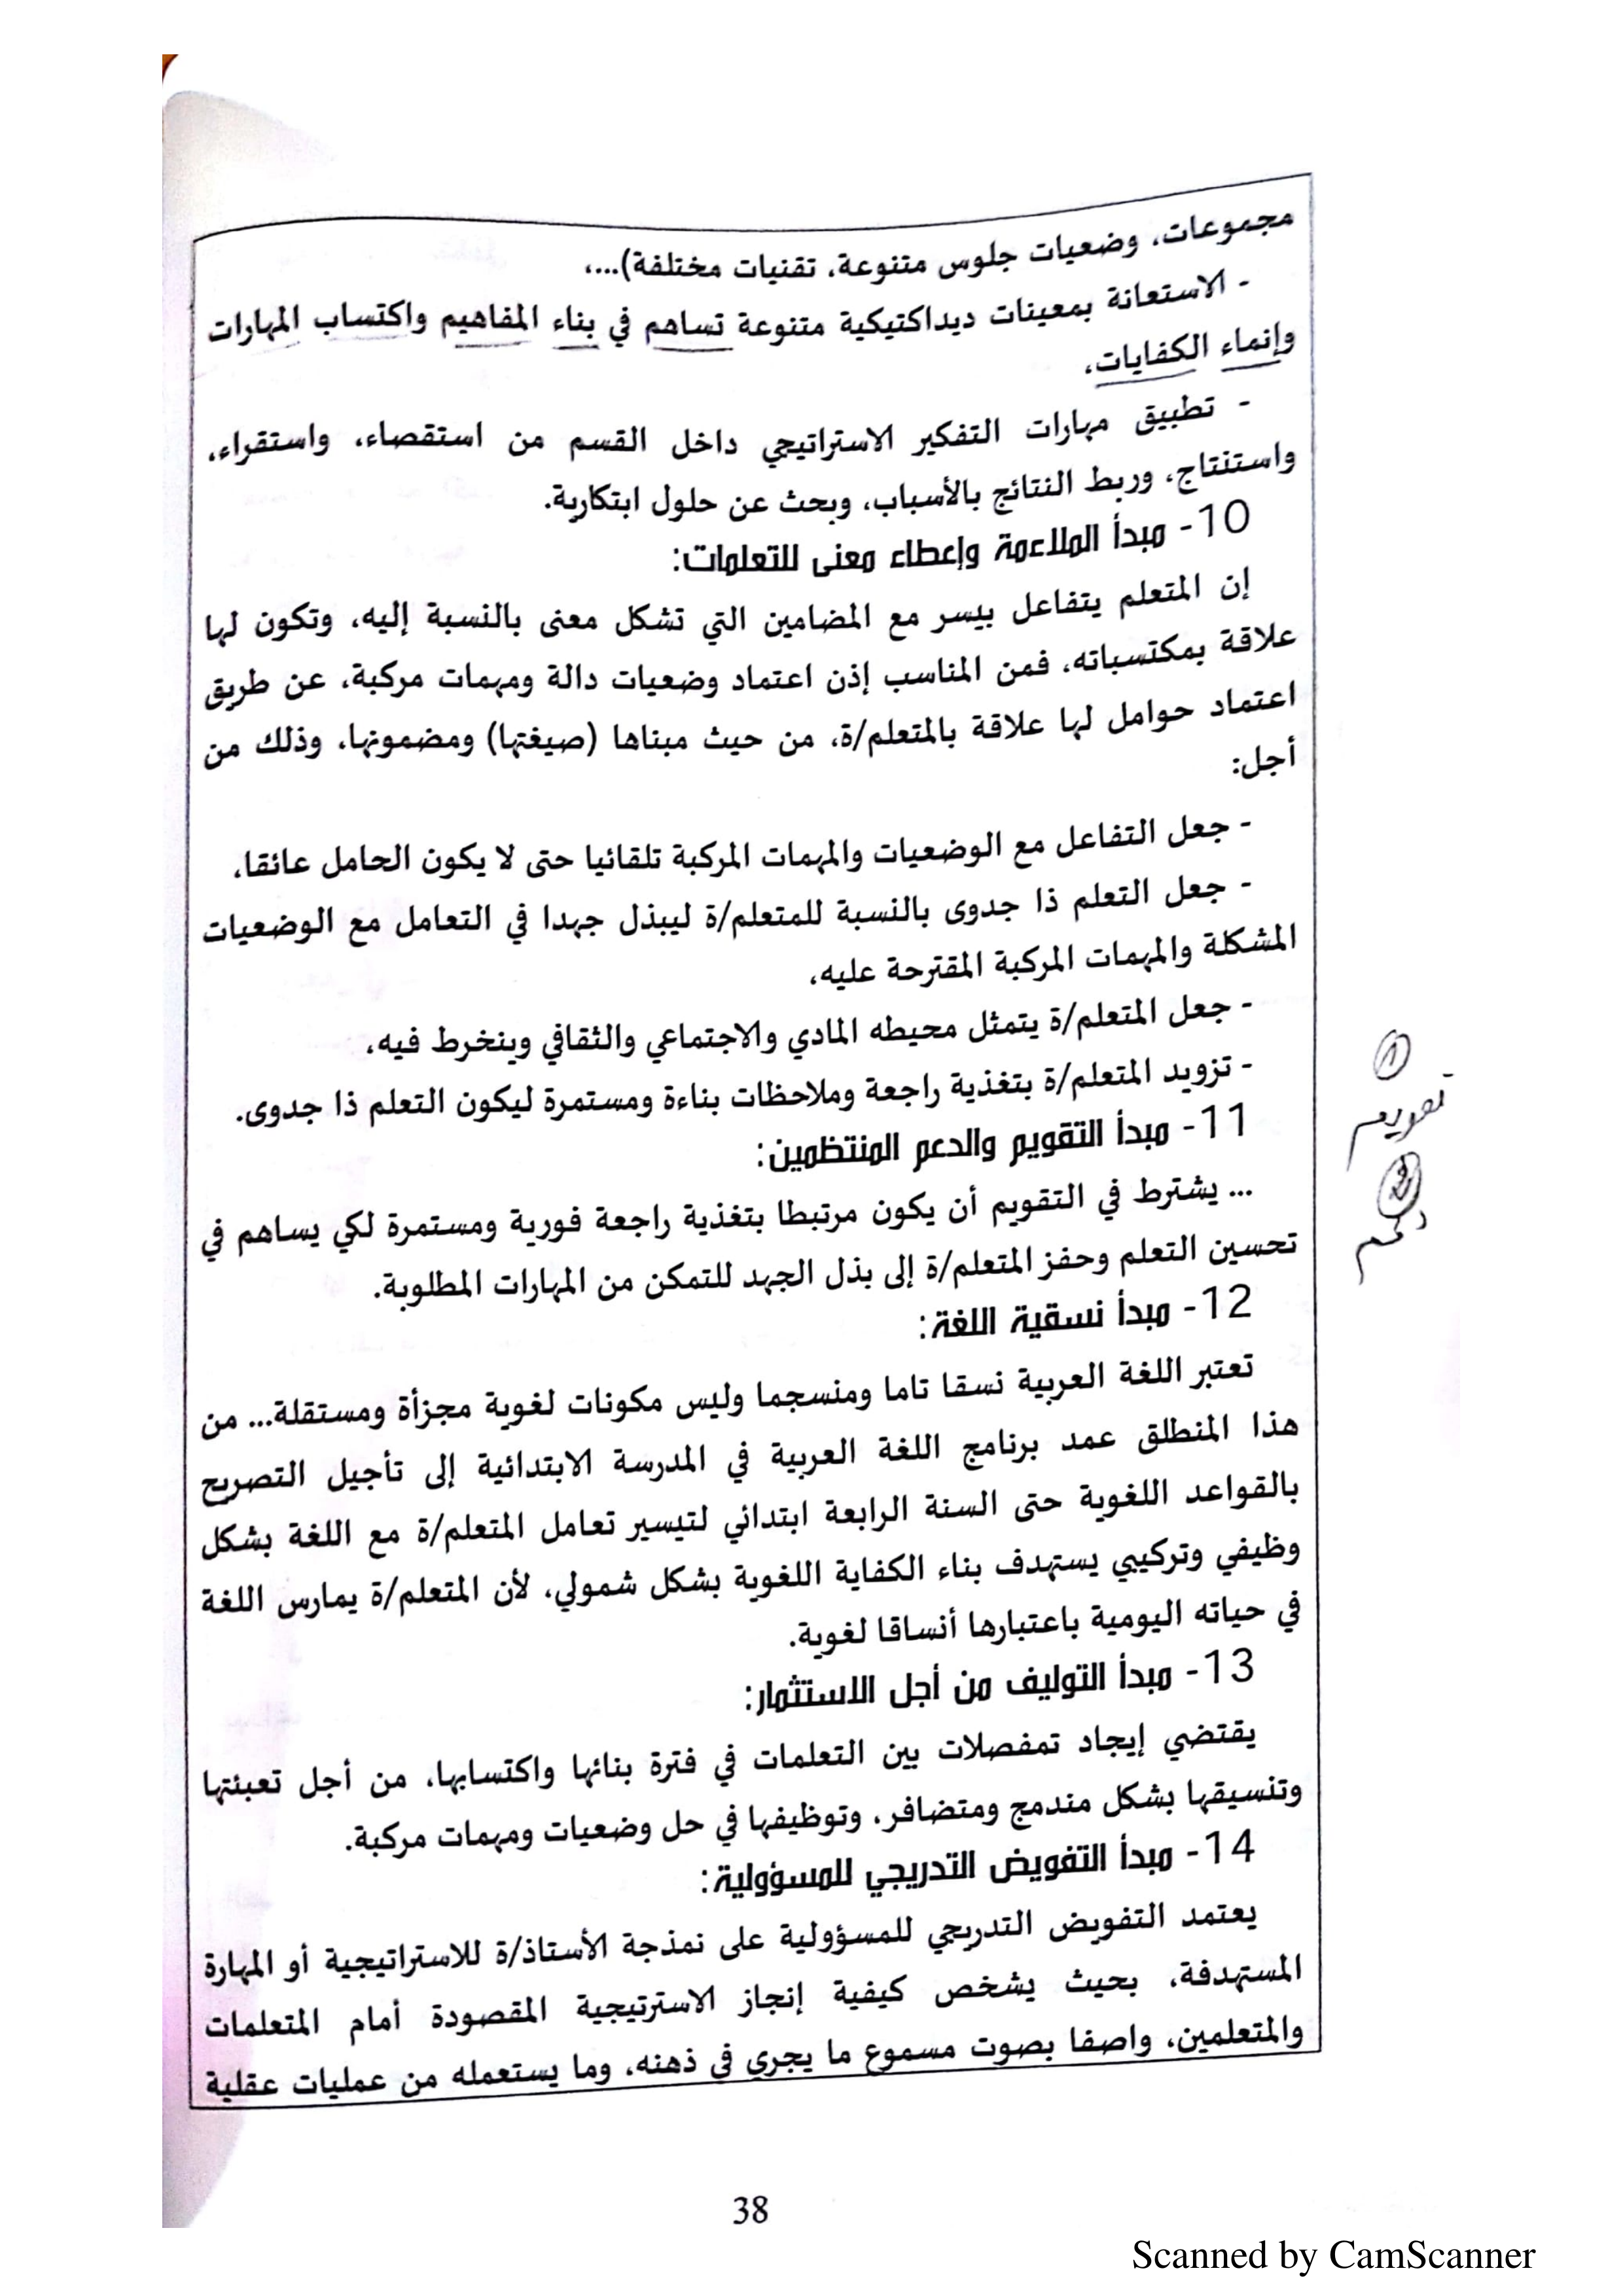 مجموعات، وضعيات جلوس متنوعة، تقنيات مختلفة)...،
- الاستعانة بمعينات ديداكتيكية متنوعة تساهم في بناء المفاهيم واكتساب المهارات
وإنماء الكفايات،
- تطبيق مهارات التفكير الاستراتيجي داخل القسم من استقصاء، واستقراء،
واستنتاج، وربط النتائج بالأسباب، وبحث عن حلول ابتكارية.
10- مبدأ الملاءمة وإعطاء معنى للتعلمات:
إن المتعلم يتفاعل بيسر مع المضامين التي تشكل معنى بالنسبة إليه، وتكون لها
علاقة بمكتسباته، فمن المناسب إذن اعتماد وضعيات دالة ومهمات مركبة، عن طريق
اعتماد حوامل لها علاقة بالمتعلم/ة، من حيث مبناها (صيغتها) ومضمونها، وذلك من
أجل:
- جعل التفاعل مع الوضعيات والمهمات المركبة تلقائيا حتى لا يكون الحامل عائقا،
- جعل التعلم ذا جدوى بالنسبة للمتعلم/ة ليبذل جهدا في التعامل مع الوضعيات
المشكلة والمهمات المركبة المقترحة عليه،
- جعل المتعلم/ة يتمثل محيطه المادي والاجتماعي والثقافي وينخرط فيه،
- تزويد المتعلم/ة بتغذية راجعة وملاحظات بناءة ومستمرة ليكون التعلم ذا جدوى.
11- مبدأ التقويم والدعم المنتظمين:
... يشترط في التقويم أن يكون مرتبطا بتغذية راجعة فورية ومستمرة لكي يساهم في
تحسين التعلم وحفز المتعلم/ة إلى بذل الجهد للتمكن من المهارات المطلوبة.
12- مبدأ نسقية اللغة:
تعتبر اللغة العربية نسقا تاما ومنسجما وليس مكونات لغوية مجزأة ومستقلة... من
هذا المنطلق عمد برنامج اللغة العربية في المدرسة الابتدائية إلى تأجيل التصريح
بالقواعد اللغوية حتى السنة الرابعة ابتدائي لتيسير تعامل المتعلم/ة مع اللغة بشكل
وظيفي وتركيبي يستهدف بناء الكفاية اللغوية بشكل شمولي، لأن المتعلم/ة يمارس اللغة
في حياته اليومية باعتبارها أنساقا لغوية.
13- مبدأ التوليف من أجل الاستثمار:
يقتضي إيجاد تمفصلات بين التعلمات في فترة بنائها واكتسابها، من أجل تعبئتها
وتنسيقها بشكل مندمج ومتضافر، وتوظيفها في حل وضعيات ومهمات مركبة.
14- مبدأ التفويض التدريجي للمسؤولية:
يعتمد التفويض التدريجي للمسؤولية على نمذجة الأستاذ/ة للاستراتيجية أو المهارة
المستهدفة، بحيث يشخص كيفية إنجاز الاسترتيجية المقصودة أمام المتعلمات
والمتعلمين، واصفا بصوت مسموع ما يجري في ذهنه، وما يستعمله من عمليات عقلية
1
تقويم
2
دعم
38
Scanned by CamScanner